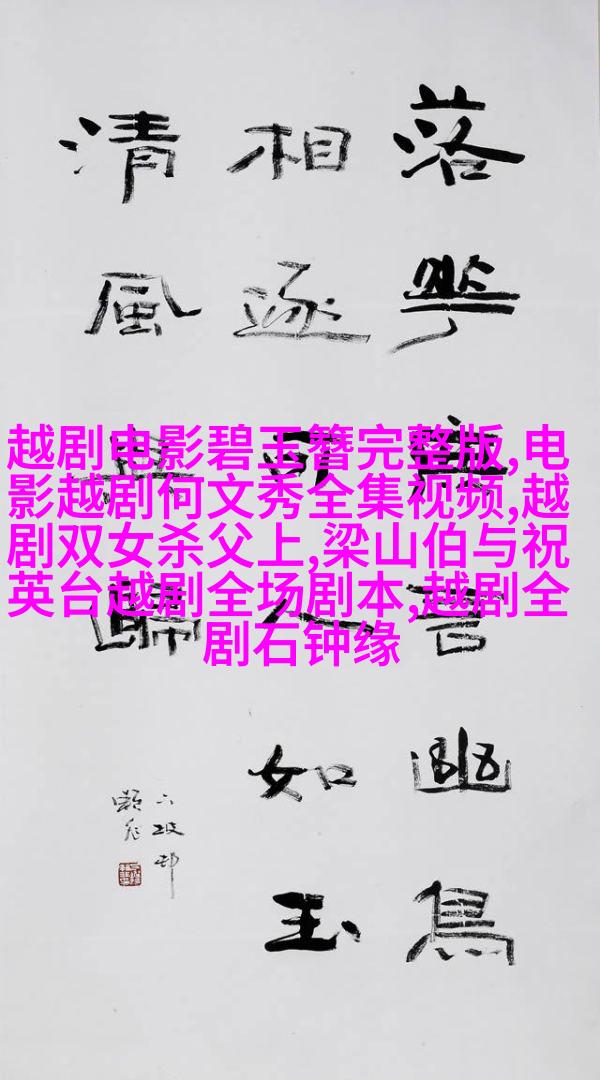 落華無言幽鳥
相逐可人如玉
清風與歸
越剧电影碧玉簪完整版,电
影越剧何文秀全集视频,越
剧双女杀父上,梁山伯与祝
英台越剧全场剧本,越剧全
剧石钟缘